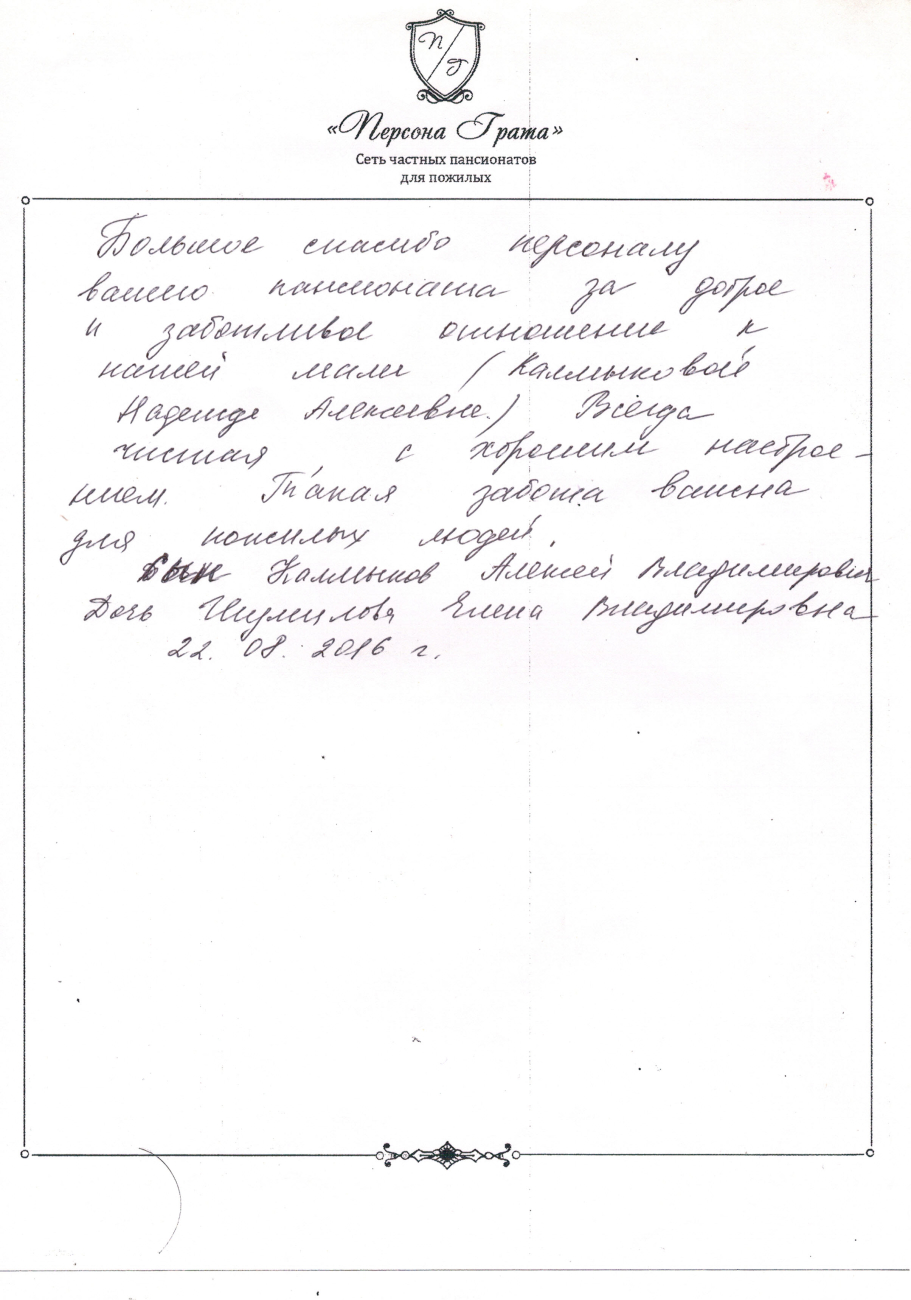 П Г
«Персона Грата»
Сеть частных пансионатов
для пожилых
Большое спасибо персоналу
вашего пансионата за доброе
и заботливое отношение к
нашей маме (Калмыковой
Надежде Алексеевне.) Всегда
чистая с хорошим настрое-
нием. Такая забота важна
для пожилых людей.
Сын Калмыков Алексей Владимирович
Дочь Шумилова Елена Владимировна
22. 08. 2016 г.